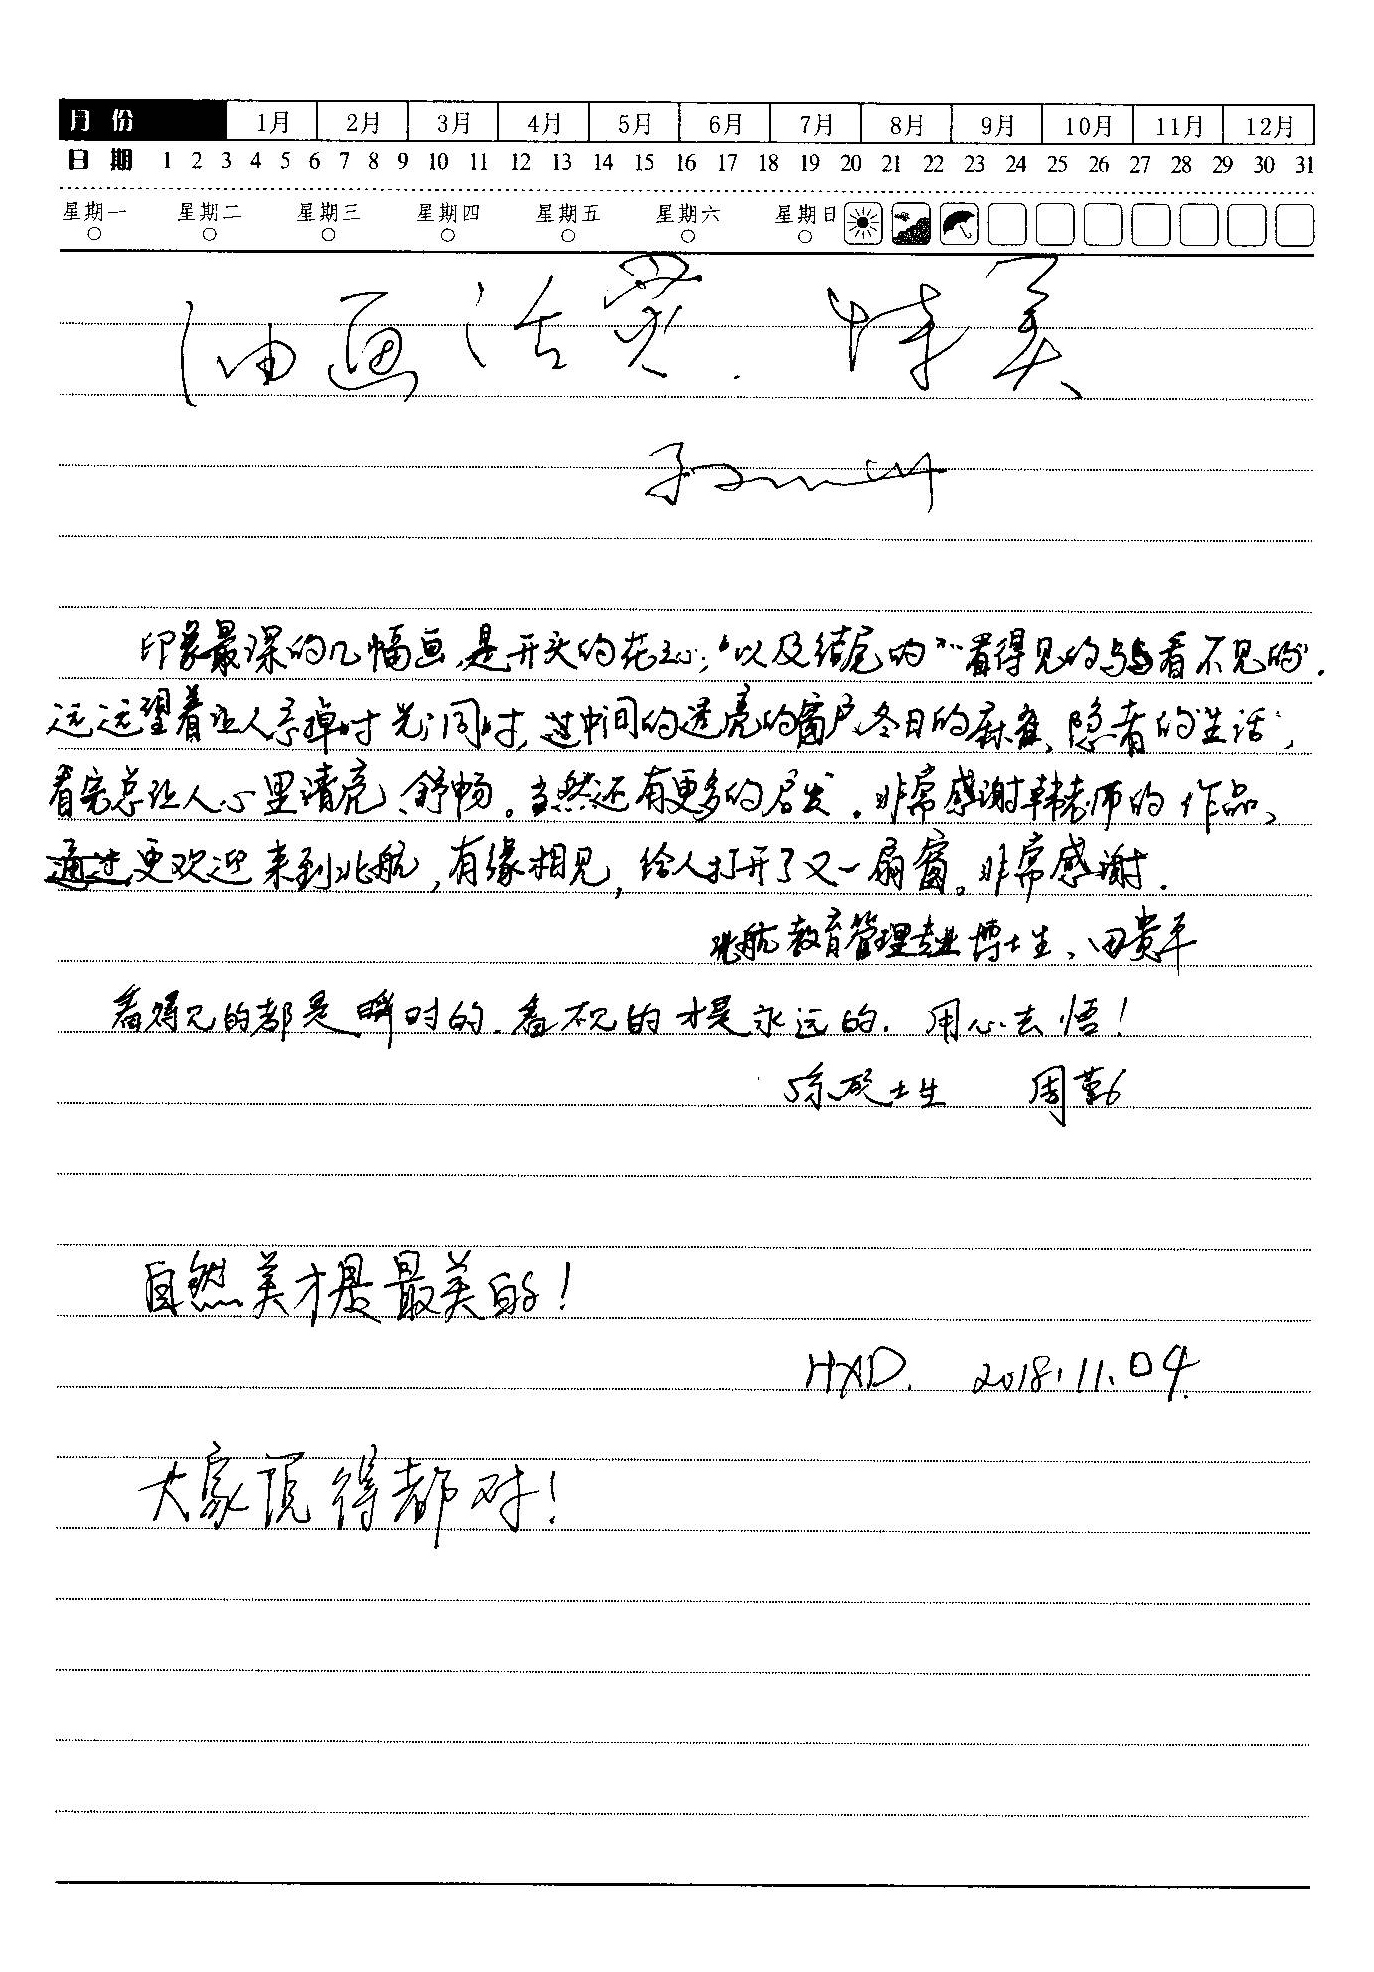 月份 1月 2月 3月 4月 5月 6月 7月 8月 9月 10月 11月 12月
日期 1 2 3 4 5 6 7 8 9 10 11 12 13 14 15 16 17 18 19 20 21 22 23 24 25 26 27 28 29 30 31
星期一 星期二 星期三 星期四 星期五 星期六 星期日
油画活灵. 特美
印象最深的几幅画,是开头的花,以及结尾的"看得见的与看不见的".
远远望着让人忘掉时光;同时,中间的透亮的窗户、冬日的麻雀、隐者的生活,
看完总让人心里清亮、舒畅。当然还有更多的启发.非常感谢韩老师的作品、
更欢迎来到北航,有缘相见,给人打开了又一扇窗。非常感谢.
北航教育管理专业博士生、田贵平
看得见的都是瞬时的.看不见的才是永远的.用心去悟!
周勤
自然美才是最美的!
HXD. 2018.11.04.
大家说得都对!